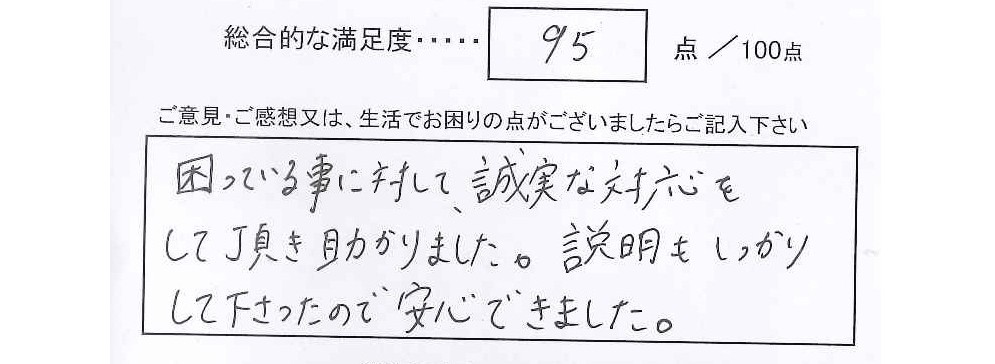 総合的な満足度・・・・・ 95 点 ／100点
ご意見・ご感想又は、生活でお困りの点がございましたらご記入下さい
困っている事に対して、誠実な対応を
して頂き助かりました。説明もしっかり
して下さったので安心できました。